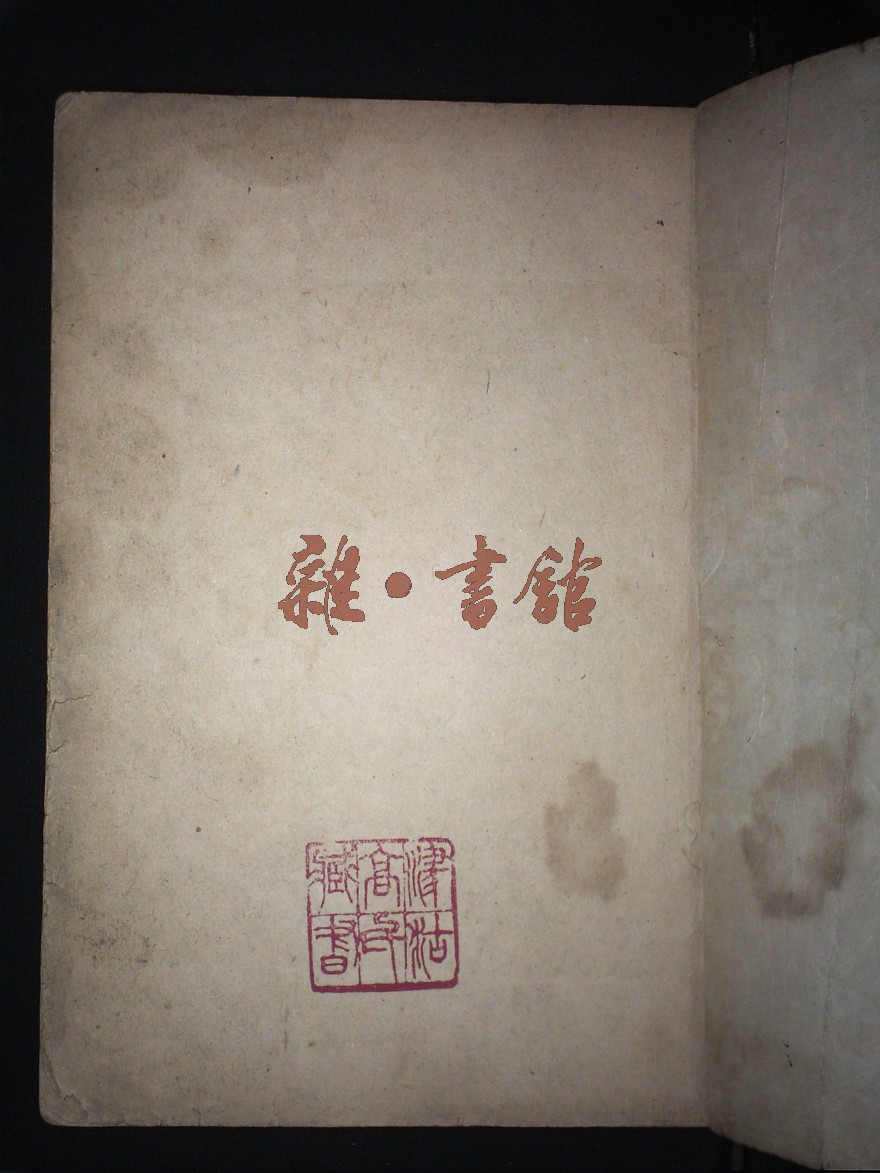 雜·書館
津沽
高氏
藏書